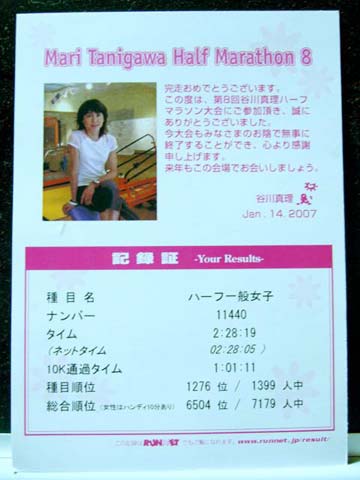 Mari Tanigawa Half Marathon 8
完走おめでとうございます。
この度は、第8回谷川真理ハーフ
マラソン大会にご参加頂き、誠に
ありがとうございました。
今大会もみなさまのお陰で無事に
終了することができ、心より感謝
申し上げます。
来年もこの会場でお会いしましょう。
谷川真理
Jan . 14. 2007
記録証 -Your Results-
種目名 ハーフ一般女子
ナンバー 11440
タイム 2:28:19
(ネットタイム 02:28:05 )
10K通過タイム 1:01:11
種目順位 1276 位 / 1399 人中
総合順位 (女性はハンディ10分あり) 6504 位 / 7179 人中
この記録は RUNNET でもご覧になれます。 www.runnet.jp/result/